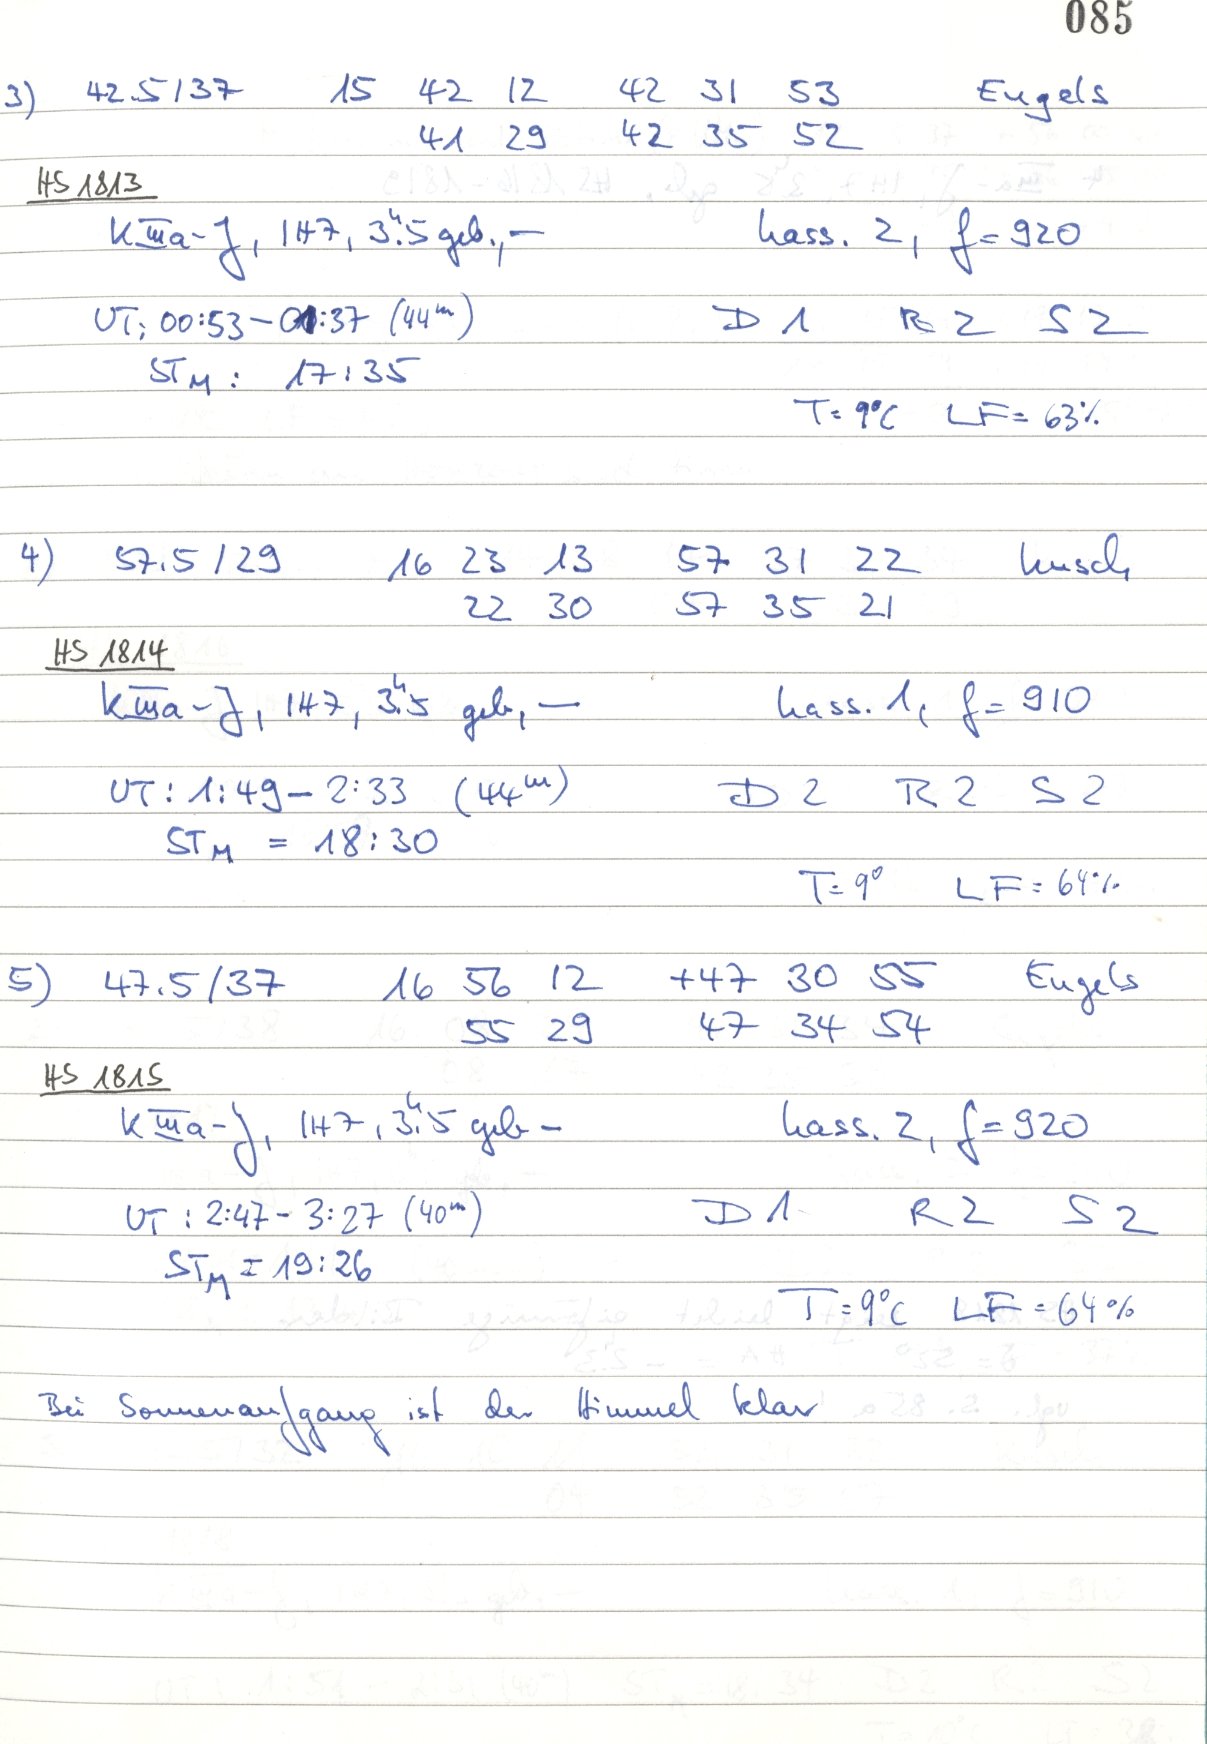 085
3) 42.5/37 15 42 12 42 31 53 Engels
41 29 42 35 52
HS 1813
K IIIa-J, 1H7, 3ʰ.5 geb., — Kass. 2, f=920
UT: 00:53–01:37 (44ᵐ) D 1 R 2 S 2
ST_M : 17:35
T= 9°C LF= 63%
4) 57.5/29 16 23 13 57 31 22 Kusch
22 30 57 35 21
HS 1814
K IIIa-J, 1H7, 3ʰ.5 geb, — Kass. 1, f= 910
UT: 1:49–2:33 (44ᵐ) D 2 R 2 S 2
ST_M = 18:30
T= 9° LF= 64%
5) 47.5/37 16 56 12 +47 30 55 Engels
55 29 47 34 54
HS 1815
K IIIa-J, 1H7, 3ʰ.5 geb – Kass. 2, f=920
UT: 2:47–3:27 (40ᵐ) D 1 R 2 S 2
ST_M = 19:26
T=9°C LF=64%
Bei Sonnenaufgang ist der Himmel klar